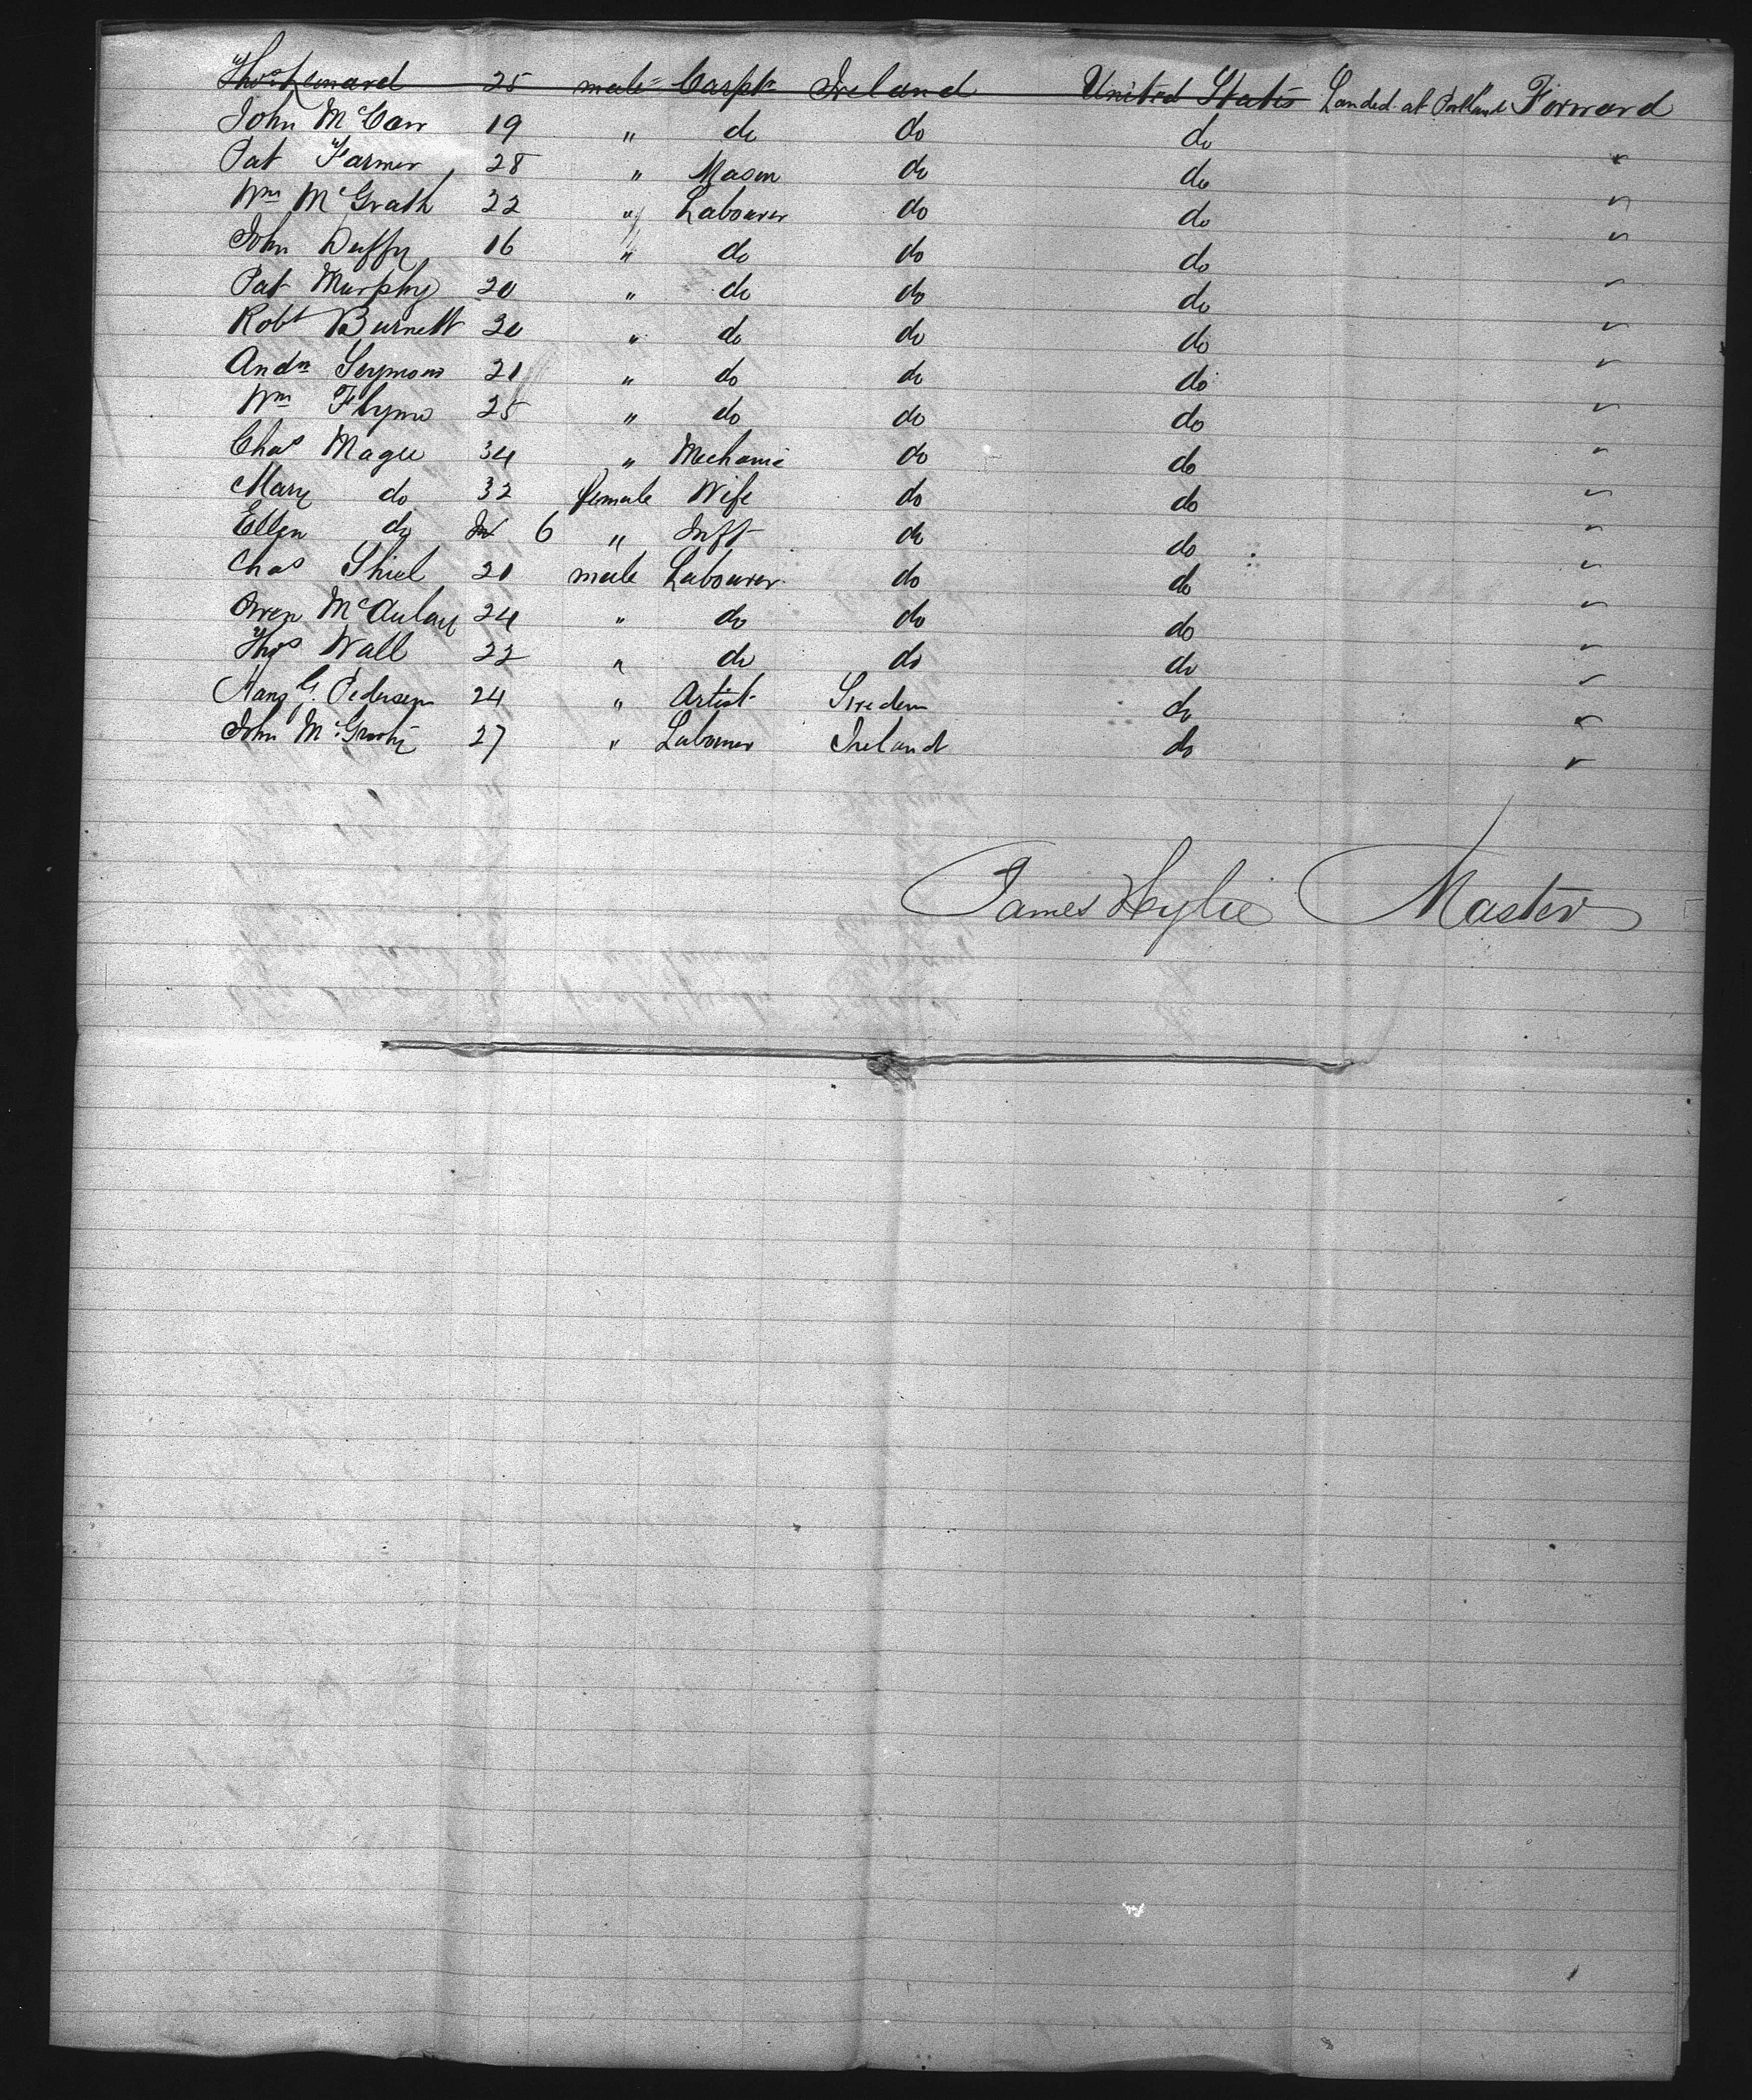 Thos Lenard 25 male Carptr Ireland United States Landed at Portland Forward
John McCarr 19 " do do do "
Pat Farmer 28 " Mason do do "
Wm McGrath 22 " Labourer do do "
John Duffy 16 " do do do "
Pat Murphy 20 " do do do "
Robt Burnett 20 " do do do "
Andw 21 " do do do "
Wm Flynn 25 " do do do "
Chas Magee 34 " Mechanic do do "
Mary do 32 female Wife do do "
Ellen do 6 " Inft do do "
Chas Shiel 21 male Labourer do do "
Owen McAulay 24 " do do do "
Thos Wall 22 " do do do "
Hans G. Pedersen 24 " Artist Sweden do "
John 27 " Labourer Ireland do "
James Wylie Master